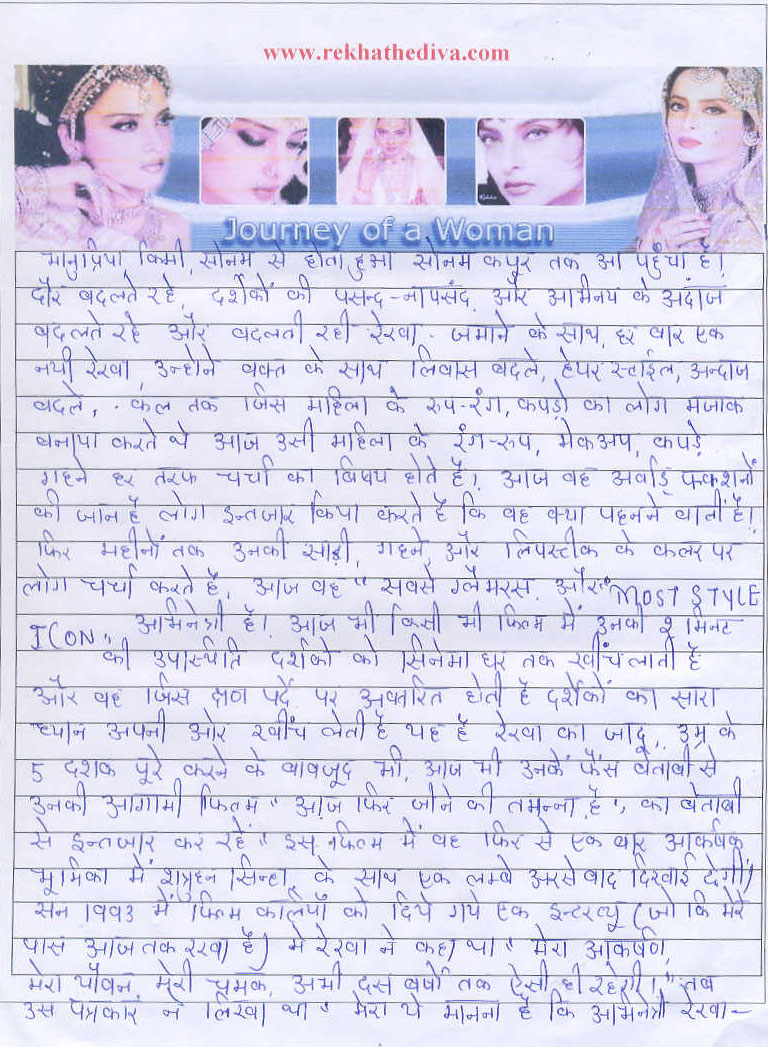 www.rekhathediva.com
Journey of a Woman
भानुप्रिया, किमी, सोनम से होता हुआ सोनम कपूर तक आ पहुँचा है।
दौर बदलते रहे, दर्शकों की पसन्द-नापसंद और अभिनय के अंदाज
बदलते रहे और बदलती रही रेखा - जमाने के साथ, हर बार एक
नयी रेखा, उन्होने वक्त के साथ लिबास बदले, हेयर स्टाईल, अन्दाज
बदले, कल तक जिस महिला के रुप-रंग, कपड़ो का लोग मजाक
बनाया करते थे आज उसी महिला के रंग-रुप, मेकअप, कपड़े
गहने हर तरफ चर्चा का विषय होते है।. आज वह अर्वाड फंकशनों
की जान है लोग इन्तजार किया करते है कि वह क्या पहनने वाली है।
फिर महीनों तक उनकी साड़ी, गहने, और लिपस्टीक के कलर पर
लोग चर्चा करते है. आज वह " सबसे ग्लैमरस. और " MOST STYLE
ICON" अभिनेत्री है। आज भी किसी भी फिल्म में उनकी 2 मिनट
की उपस्थिति दर्शको को सिनेमा घर तक खींच लाती है
और वह जिस क्षण पर्दे पर अवतरित होती है दर्शकों का सारा
ध्यान अपनी ओर खींच लेती है यह है रेखा का जादू, उम्र के
5 दशक पूरे करने के बावजूद भी, आज भी उनके फैंस बेताबी से
उनकी आगामी फिल्म " आज फिर जीने की तमन्ना है", का बेताबी
से इन्तजार कर रहें " इस फिल्म में वह फिर से एक बार आकर्षक
भूमिका में शत्रुघ्न सिन्हा के साथ एक लम्बे अरसे बाद दिखाई देगी)
सन 1993 में फिल्म कलियाँ को दिये गये एक इन्टरव्यू (जो कि मेरे
पास आज तक रखा है) मे रेखा ने कहा था " मेरा आकर्षण,
मेरा यौवन, मेरी चमक, अभी दस वर्षो तक ऐसी ही रहेगी।" तब
उस पत्रकार ने लिखा था " मेरा ये मानना है कि अभिनेत्री रेखा-